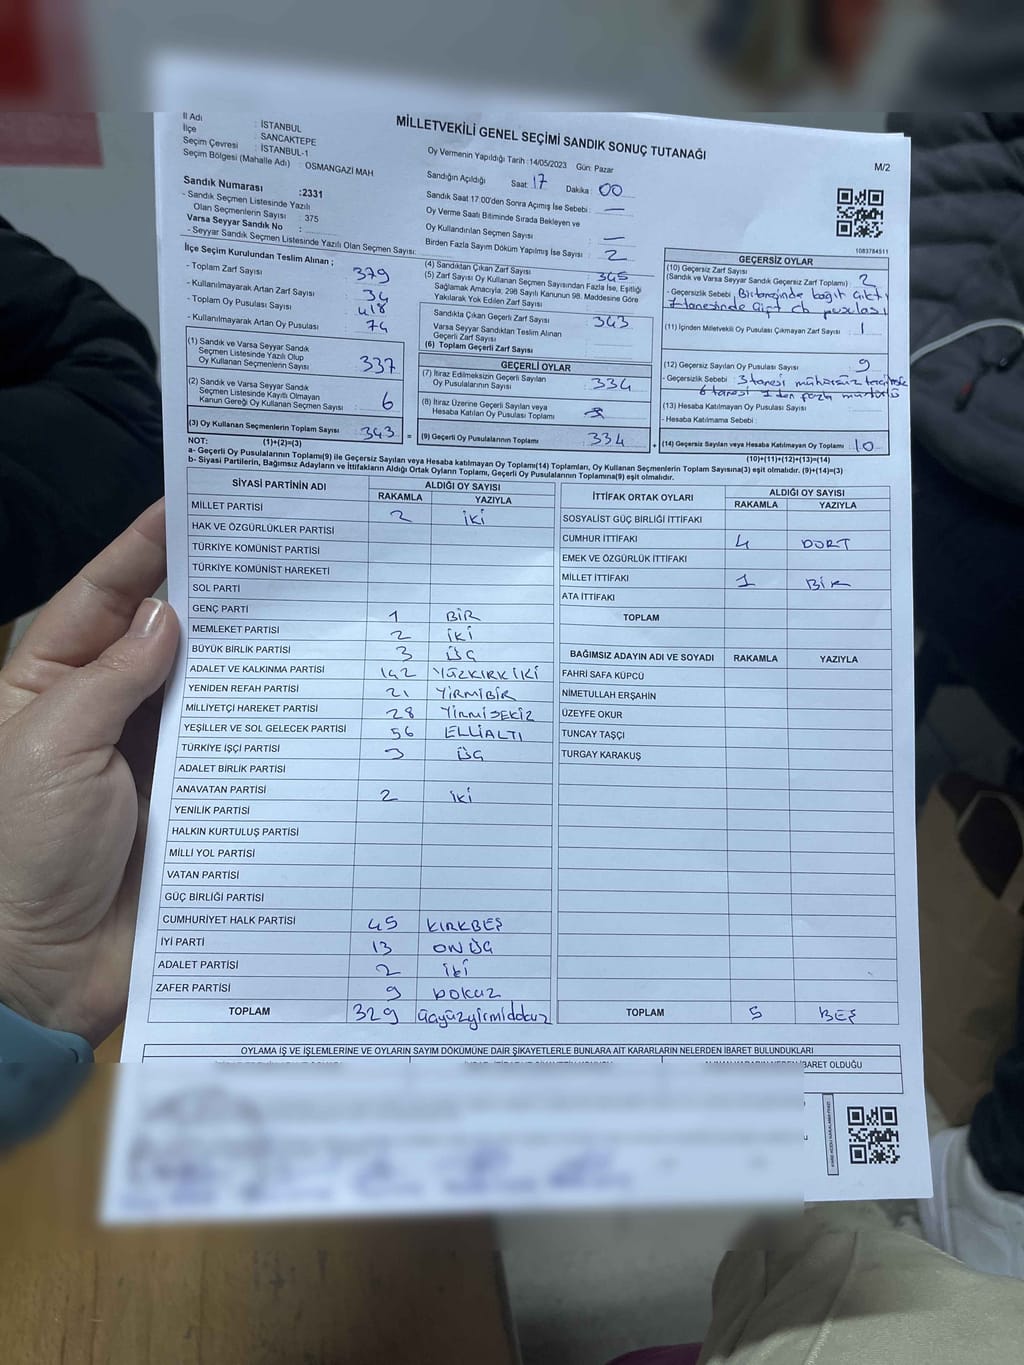 MİLLETVEKİLİ GENEL SEÇİMİ SANDIK SONUÇ TUTANAĞI
M/2
İl Adı : İSTANBUL
İlçe : SANCAKTEPE
Seçim Çevresi : İSTANBUL-1
Seçim Bölgesi (Mahalle Adı) : OSMANGAZİ MAH
Sandık Numarası :2331
- Sandık Seçmen Listesinde Yazılı
Olan Seçmenlerin Sayısı : 375
Varsa Seyyar Sandık No :
- Seyyar Sandık Seçmen Listesinde Yazılı Olan Seçmen Sayısı:
Oy Vermenin Yapıldığı Tarih :14/05/2023 Gün: Pazar
Sandığın Açıldığı Saat: 17 Dakika: 00
Sandık Saat 17.00'den Sonra Açılmış İse Sebebi : —
Oy Verme Saati Bitiminde Sırada Bekleyen ve
Oy Kullandırılan Seçmen Sayısı : —
Birden Fazla Sayım Döküm Yapılmış İse Sayısı : 2
1083784511
İlçe Seçim Kurulundan Teslim Alınan ;
- Toplam Zarf Sayısı : 379
- Kullanılmayarak Artan Zarf Sayısı : 34
- Toplam Oy Pusulası Sayısı : 418
- Kullanılmayarak Artan Oy Pusulası : 74
(1) Sandık ve Varsa Seyyar Sandık
Seçmen Listesinde Yazılı Olup
Oy Kullanan Seçmenlerin Sayısı : 337
(2) Sandık ve Varsa Seyyar Sandık
Seçmen Listesinde Kayıtlı Olmayan
Kanun Gereği Oy Kullanan Seçmen Sayısı : 6
(3) Oy Kullanan Seçmenlerin Toplam Sayısı : 343
(1)+(2)=(3)
(4) Sandıktan Çıkan Zarf Sayısı : 345
(5) Zarf Sayısı Oy Kullanan Seçmen Sayısından Fazla İse, Eşitliği
Sağlamak Amacıyla; 298 Sayılı Kanunun 98. Maddesine Göre
Yakılarak Yok Edilen Zarf Sayısı :
Sandıkta Çıkan Geçerli Zarf Sayısı : 343
Varsa Seyyar Sandıktan Teslim Alınan
Geçerli Zarf Sayısı :
(6) Toplam Geçerli Zarf Sayısı :
GEÇERLİ OYLAR
(7) İtiraz Edilmeksizin Geçerli Sayılan
Oy Pusulalarının Sayısı : 334
(8) İtiraz Üzerine Geçerli Sayılan veya
Hesaba Katılan Oy Pusulası Toplamı :
= (9) Geçerli Oy Pusulalarının Toplamı : 334
GEÇERSİZ OYLAR
(10) Geçersiz Zarf Sayısı
(Sandık ve Varsa Seyyar Sandık Geçersiz Zarf Toplamı) : 2
- Geçersizlik Sebebi : Birtanesinde kağıt çıktı
1 tanesinde çift cb pusulası
(11) İçinden Milletvekili Oy Pusulası Çıkmayan Zarf Sayısı : 1
(12) Geçersiz Sayılan Oy Pusulası Sayısı : 9
- Geçersizlik Sebebi : 3 tanesi mühürsüz
6 tanesi 1 den fazla mühürlü
(13) Hesaba Katılmayan Oy Pusulası Sayısı :
- Hesaba Katılmama Sebebi :
+ (14) Geçersiz Sayılan veya Hesaba Katılmayan Oy Toplamı : 10
(10)+(11)+(12)+(13)=(14)
NOT:
a- Geçerli Oy Pusulalarının Toplamı(9) ile Geçersiz Sayılan veya Hesaba katılmayan Oy Toplamı(14) Toplamları, Oy Kullanan Seçmenlerin Toplam Sayısına(3) eşit olmalıdır. (9)+(14)=(3)
b- Siyasi Partilerin, Bağımsız Adayların ve İttifakların Aldığı Ortak Oyların Toplamı, Geçerli Oy Pusulalarının Toplamına(9) eşit olmalıdır.
SİYASİ PARTİNİN ADI ALDIĞI OY SAYISI
RAKAMLA YAZIYLA
MİLLET PARTİSİ 2 İKİ
HAK VE ÖZGÜRLÜKLER PARTİSİ
TÜRKİYE KOMÜNİST PARTİSİ
TÜRKİYE KOMÜNİST HAREKETİ
SOL PARTİ
GENÇ PARTİ 1 BİR
MEMLEKET PARTİSİ 2 İKİ
BÜYÜK BİRLİK PARTİSİ 3 ÜÇ
ADALET VE KALKINMA PARTİSİ 142 YÜZKIRKİKİ
YENİDEN REFAH PARTİSİ 21 YİRMİBİR
MİLLİYETÇİ HAREKET PARTİSİ 28 YİRMİSEKİZ
YEŞİLLER VE SOL GELECEK PARTİSİ 56 ELLİALTI
TÜRKİYE İŞÇİ PARTİSİ 3 ÜÇ
ADALET BİRLİK PARTİSİ
ANAVATAN PARTİSİ 2 İKİ
YENİLİK PARTİSİ
HALKIN KURTULUŞ PARTİSİ
MİLLİ YOL PARTİSİ
VATAN PARTİSİ
GÜÇ BİRLİĞİ PARTİSİ
CUMHURİYET HALK PARTİSİ 45 KIRKBEŞ
İYİ PARTİ 13 ONÜÇ
ADALET PARTİSİ 2 İKİ
ZAFER PARTİSİ 9 DOKUZ
TOPLAM 329 üçyüzyirmidokuz
İTTİFAK ORTAK OYLARI ALDIĞI OY SAYISI
RAKAMLA YAZIYLA
SOSYALİST GÜÇ BİRLİĞİ İTTİFAKI
CUMHUR İTTİFAKI 4 DORT
EMEK VE ÖZGÜRLÜK İTTİFAKI
MİLLET İTTİFAKI 1 BİR
ATA İTTİFAKI
TOPLAM
BAĞIMSIZ ADAYIN ADI VE SOYADI RAKAMLA YAZIYLA
FAHRİ SAFA KÜPCÜ
NİMETULLAH ERŞAHİN
ÜZEYFE OKUR
TUNCAY TAŞÇI
TURGAY KARAKUŞ
TOPLAM 5 BEŞ
OYLAMA İŞ VE İŞLEMLERİNE VE OYLARIN SAYIM DÖKÜMÜNE DAİR ŞİKAYETLERLE BUNLARA AİT KARARLARIN NELERDEN İBARET BULUNDUKLARI
İBARET OLDUĞU